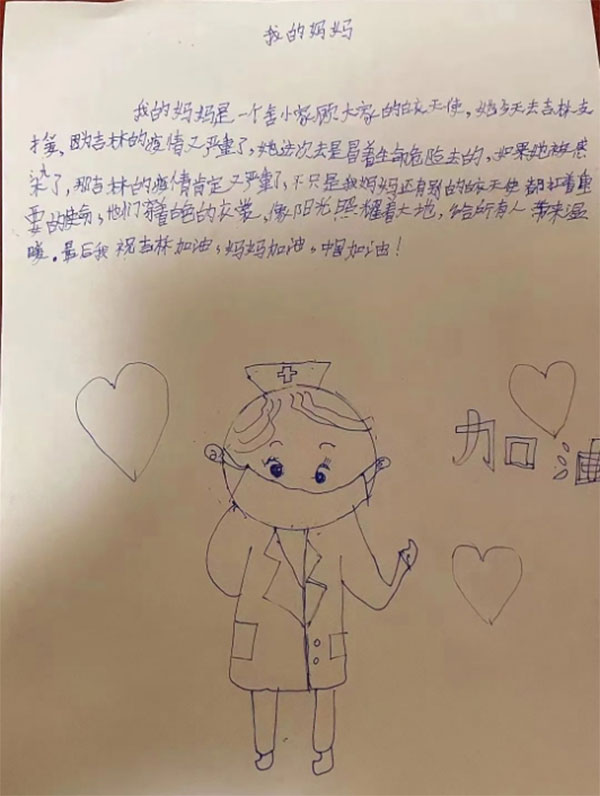 我的妈妈
我的妈妈是一个舍小家顾大家的白衣天使，她今天去吉林支
援，因为吉林的疫情又严重了，她这次去是冒着生命危险去的，如果她被感
染了，那吉林的疫情肯定又严重了，不只是我妈妈还有别的白衣天使都扛着重
要的使命，他们穿着白色的衣裳，像阳光照耀着大地，给所有人带来温
暖。最后我祝吉林加油，妈妈加油，中国加油！
加油